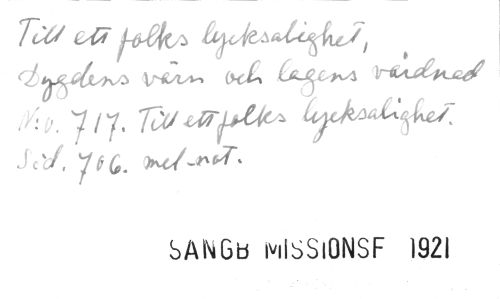 Till ett folks lycksalighet,
Dygdens värn och lagens vårdnad
N:o. 717. Till ett folks lycksalighet.
Sid. 706. mel-not.
SANGB MISSIONSF 1921